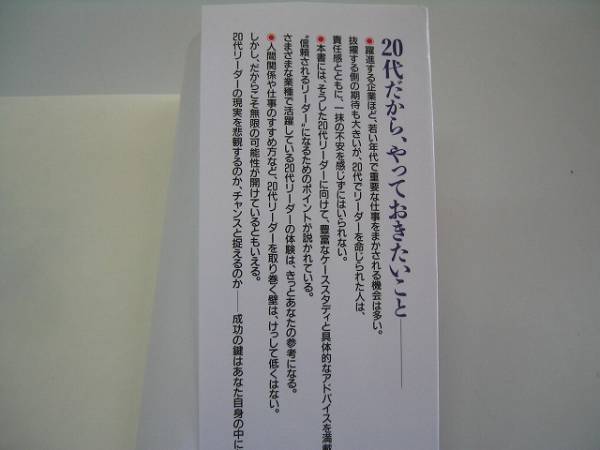 20代だから、やっておきたいこと――
●躍進する企業ほど、若い年代で重要な仕事をまかされる機会は多い。
抜擢する側の期待も大きいが、20代でリーダーを命じられた人は、
責任感とともに、一抹の不安を感じずにはいられない。
●本書には、そうした20代リーダーに向けて、豊富なケーススタディと具体的なアドバイスを満載
“信頼されるリーダー”になるためのポイントが説かれている。
さまざまな業種で活躍している20代リーダーの体験は、きっとあなたの参考になる。
●人間関係や仕事のすすめ方など、20代リーダーを取り巻く壁は、けっして低くはない。
しかし、だからこそ無限の可能性が開けているともいえる。
20代リーダーの現実を悲観するのか、チャンスと捉えるのか――成功の鍵はあなた自身の中に